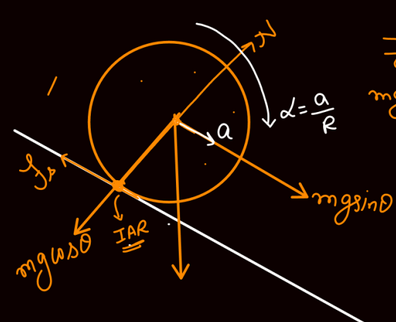 N
α = a/R
a
mg
mgsinθ
mgcosθ
IAR